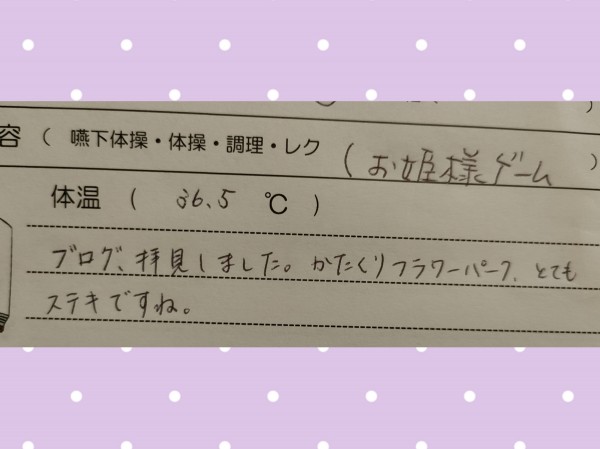 容 ( 嚥下体操・体操・調理・レク (お姫様ゲーム )
体温 ( 36.5 ℃ )
ブログ、拝見しました。かたくりフラワーパーク、とても
ステキですね。